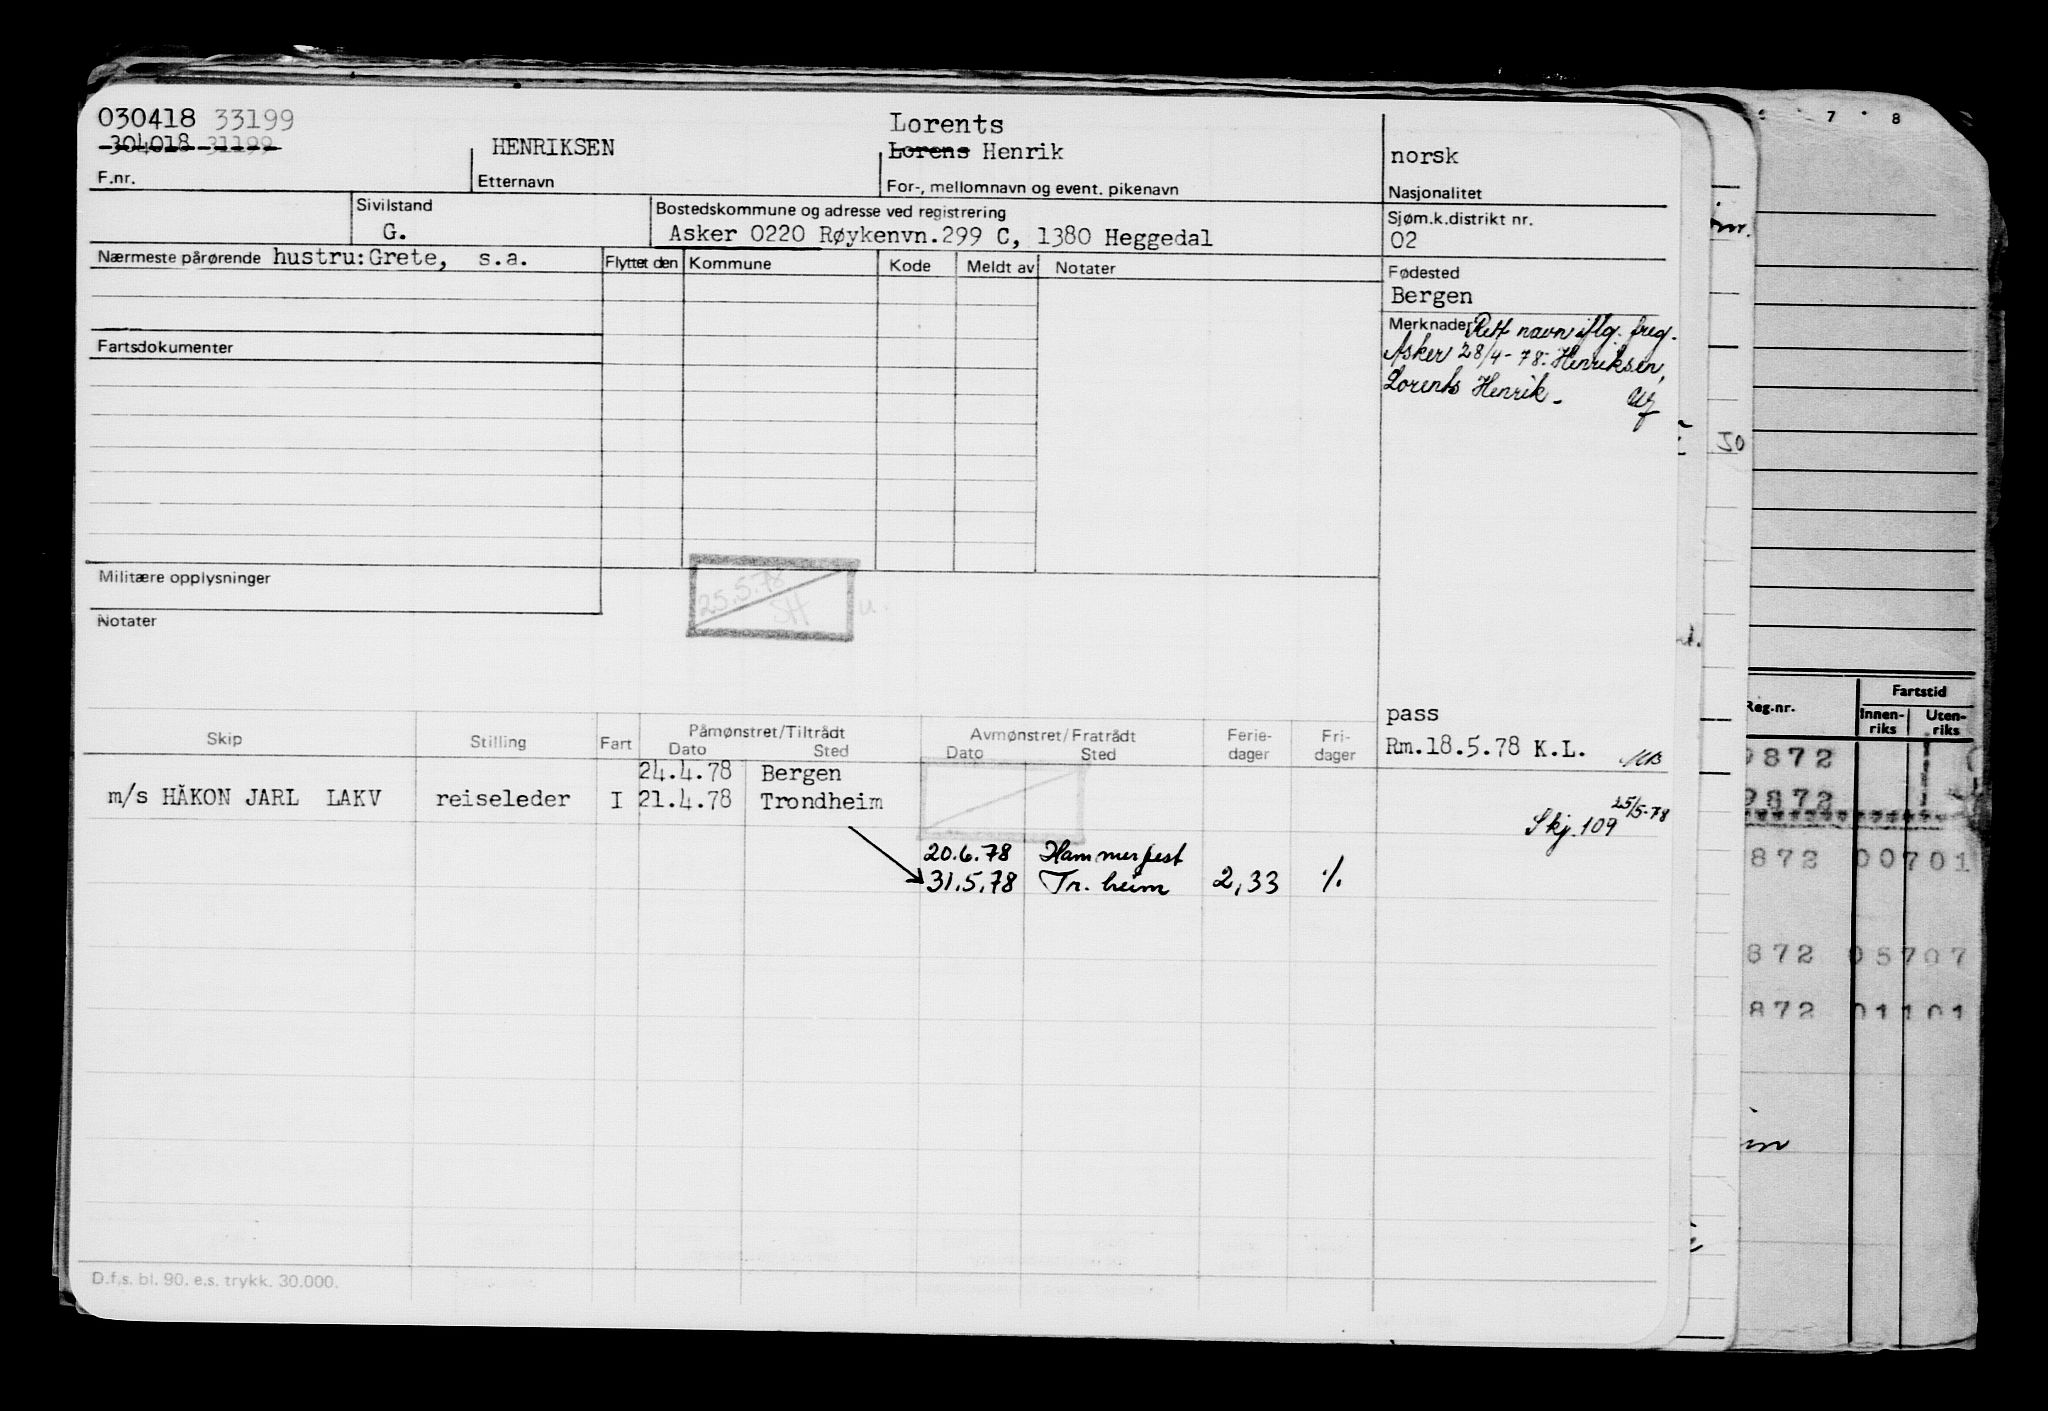 030418 33199
304018 31199
F.nr.
HENRIKSEN
Etternavn
Lorents
Lorens Henrik
For-, mellomnavn og event. pikenavn
norsk
Nasjonalitet
Sivilstand
G.
Bostedskommune og adresse ved registrering
Asker 0220 Røykenvn.299 C, 1380 Heggedal
Sjøm.k.distrikt nr.
02
Nærmeste pårørende hustru: Grete, s.a.
Flyttet den Kommune Kode Meldt av Notater
Fødested
Bergen
Merknader Rett navn iflg. freg.
Asker 28/4-78: Henriksen,
Lorents Henrik-
Fartsdokumenter
Militære opplysninger
25.5.78
SH
u.
Notater
pass
Rm.18.5.78 K.L.
Skip Stilling Fart Påmønstret/Tiltrådt Dato Sted Avmønstret/Fratrådt Dato Sted Ferie-dager Fri-dager
24.4.78 Bergen
m/s HÅKON JARL LAKV reiseleder I 21.4.78 Trondheim
Skj. 109 25/5-78
20.6.78 Hammerfest
31.5.78 Tr. heim 2,33 ./.
D.f.s. bl. 90. e.s. trykk. 30.000.
7 8
50
Reg.nr. Fartstid
Innen-riks Uten-riks
9872
9872
872 00701
872 05707
872 01101